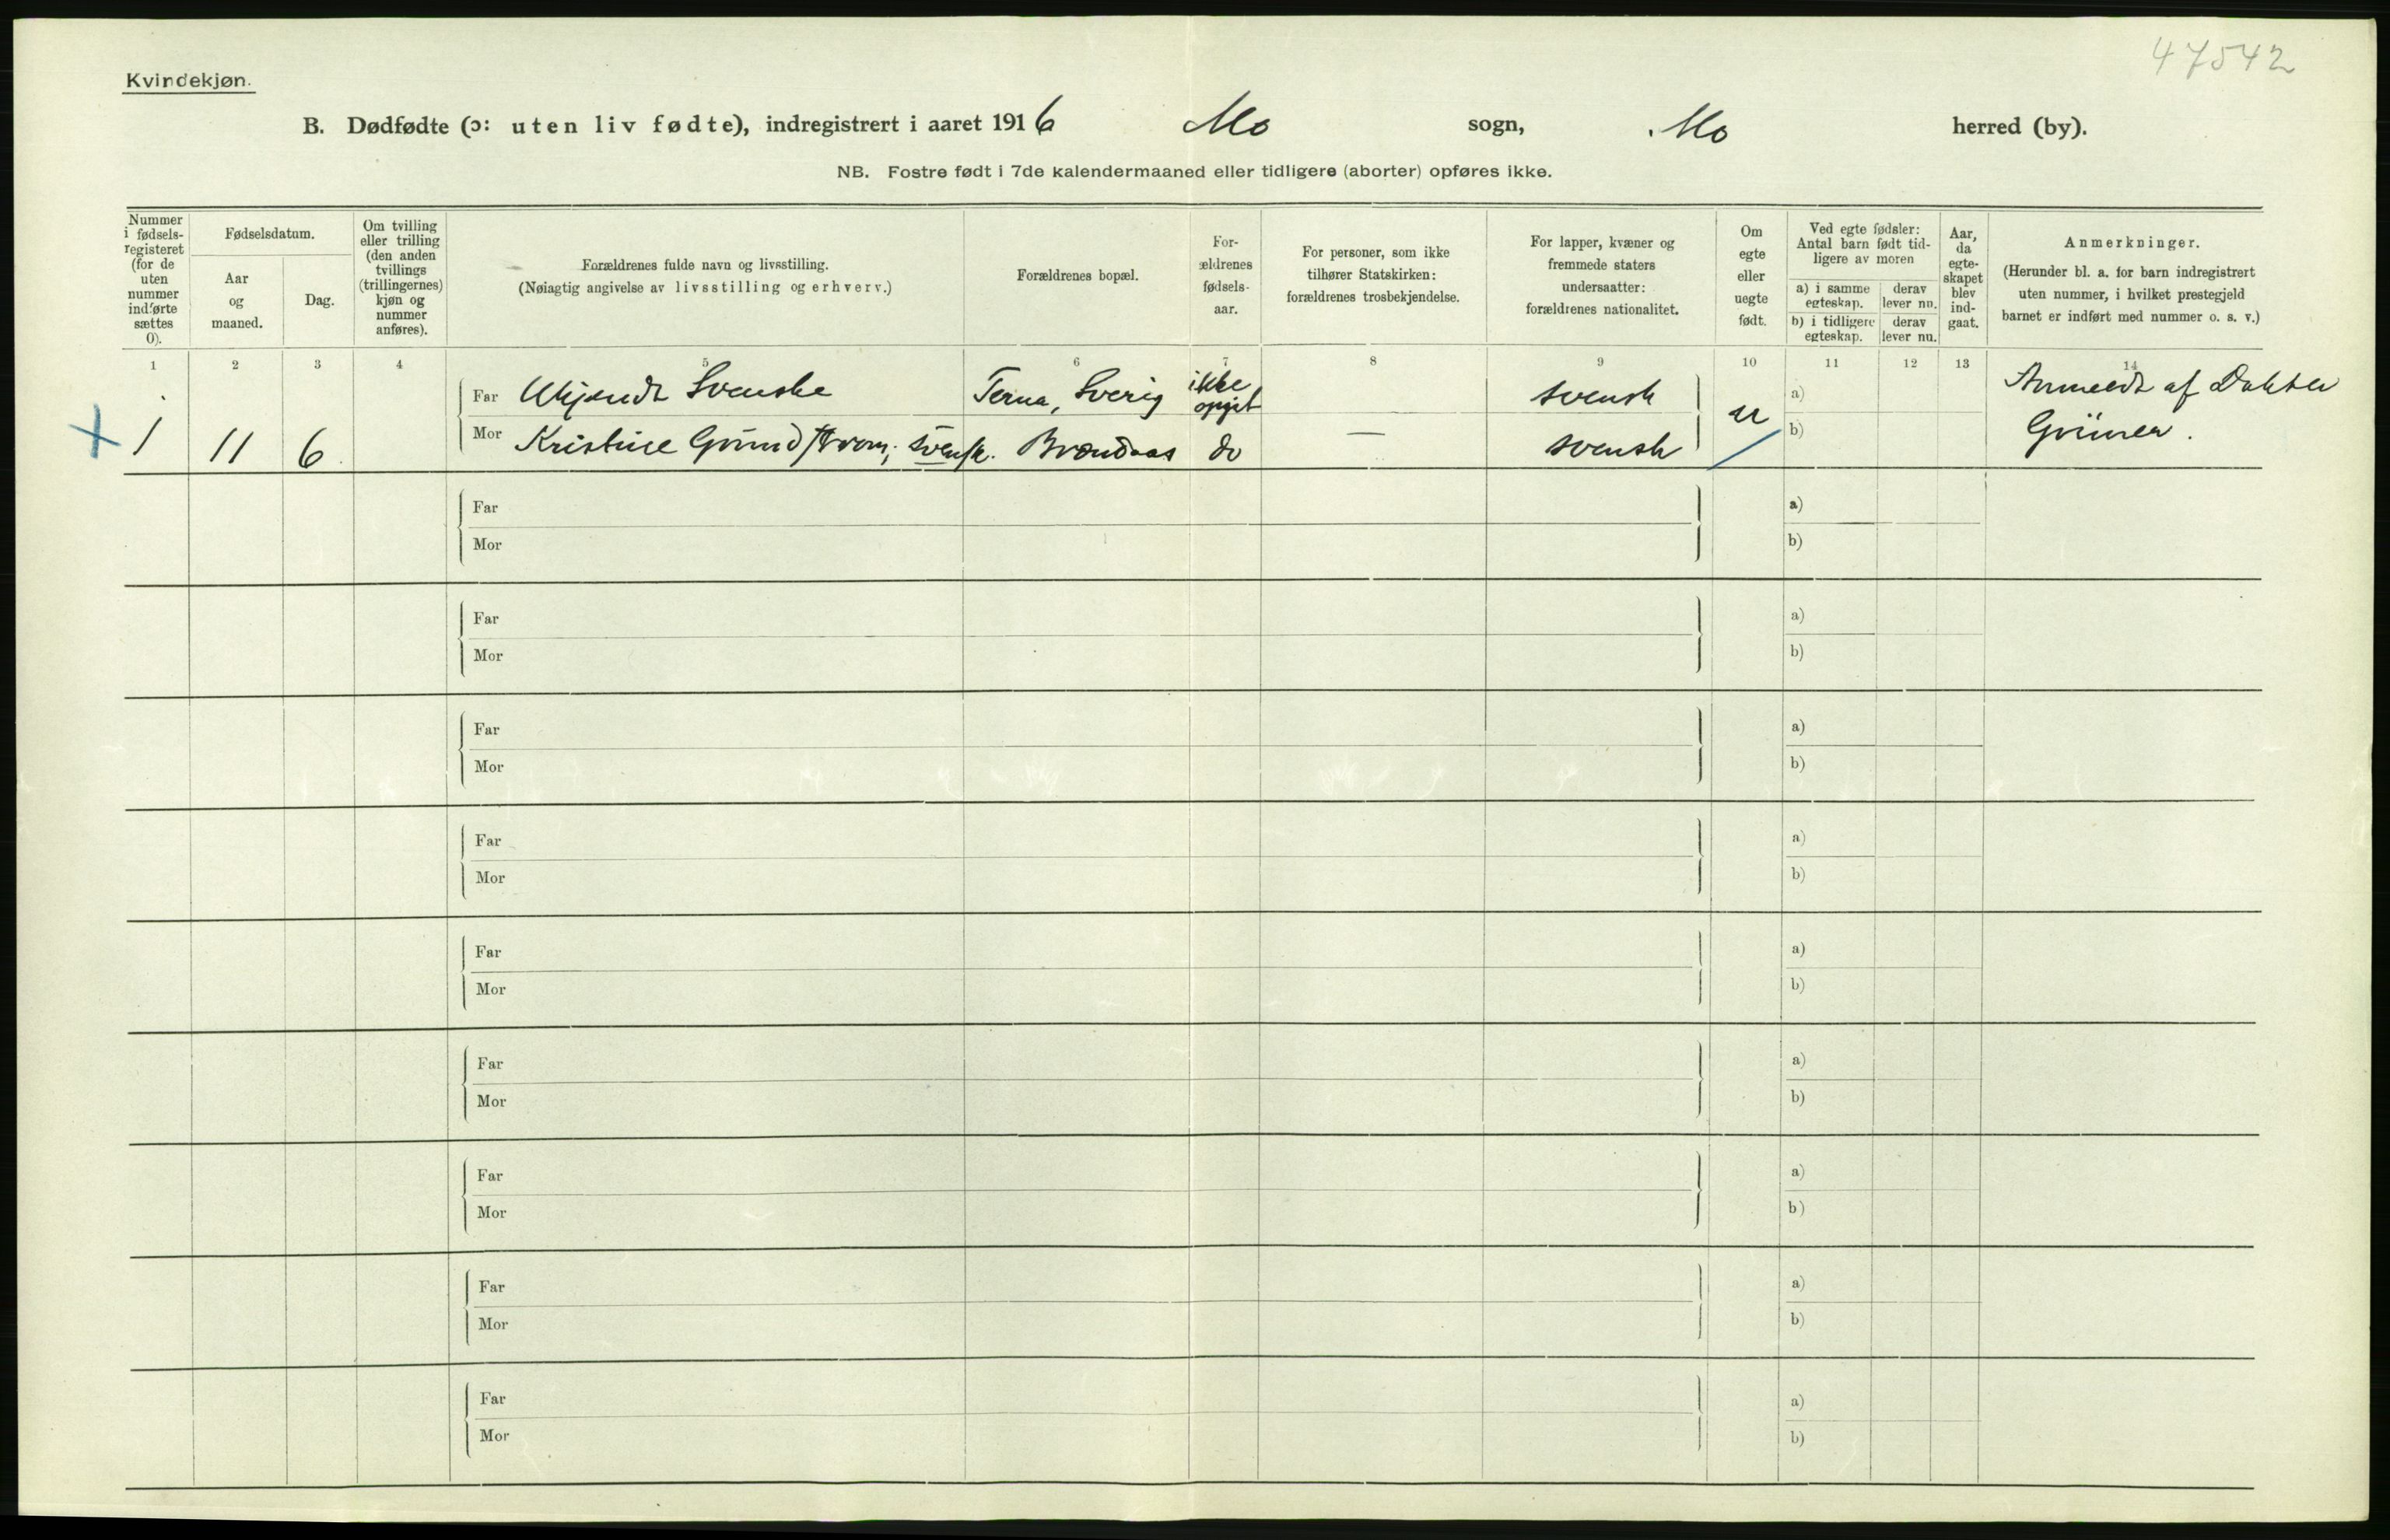 47542
Kvindekjøn.
B. Dødfødte (ɔ: uten liv fødte), indregistrert i aaret 1916 Mo sogn, Mo herred (by).
NB. Fostre født i 7de kalendermaaned eller tidligere (aborter) opføres ikke.
Nummer
i fødsels-
registeret
(for de
uten
nummer
indførte
sættes
0).
Fødselsdatum.
Aar
og
maaned.
Dag.
Om tvilling
eller trilling
(den anden
tvillings
(trillingernes)
kjøn og
nummer
anføres).
Forældrenes fulde navn og livsstilling.
(Nøiagtig angivelse av livsstilling og erhverv.)
Forældrenes bopæl.
For-
ældrenes
fødsels-
aar.
For personer, som ikke
tilhører Statskirken:
forældrenes trosbekjendelse.
For lapper, kvæner og
fremmede staters
undersaatter:
forældrenes nationalitet.
Om
egte
eller
uegte
født.
Ved egte fødsler:
Antal barn født tid-
ligere av moren
a) i samme
egteskap.
derav
lever nu.
b) i tidligere
egteskap.
derav
lever nu.
Aar,
da
egte-
skapet
blev
ind-
gaat.
Anmerkninger.
(Herunder bl. a. for barn indregistrert
uten nummer, i hvilket prestegjeld
barnet er indført med nummer o. s. v.)
1 2 3 4 5 6 7 8 9 10 11 12 13 14
Far Ukjendt Svenske Terna, Sverig ikke opgit svensk a) Anmeldt af Dokter
1 11 6 Mor Kristine Grundstrøm; svensk. Brændaas do — svensk u b) Grüner.
Far a)
Mor b)
Far a)
Mor b)
Far a)
Mor b)
Far a)
Mor b)
Far a)
Mor b)
Far a)
Mor b)
Far a)
Mor b)
Far a)
Mor b)
Far a)
Mor b)